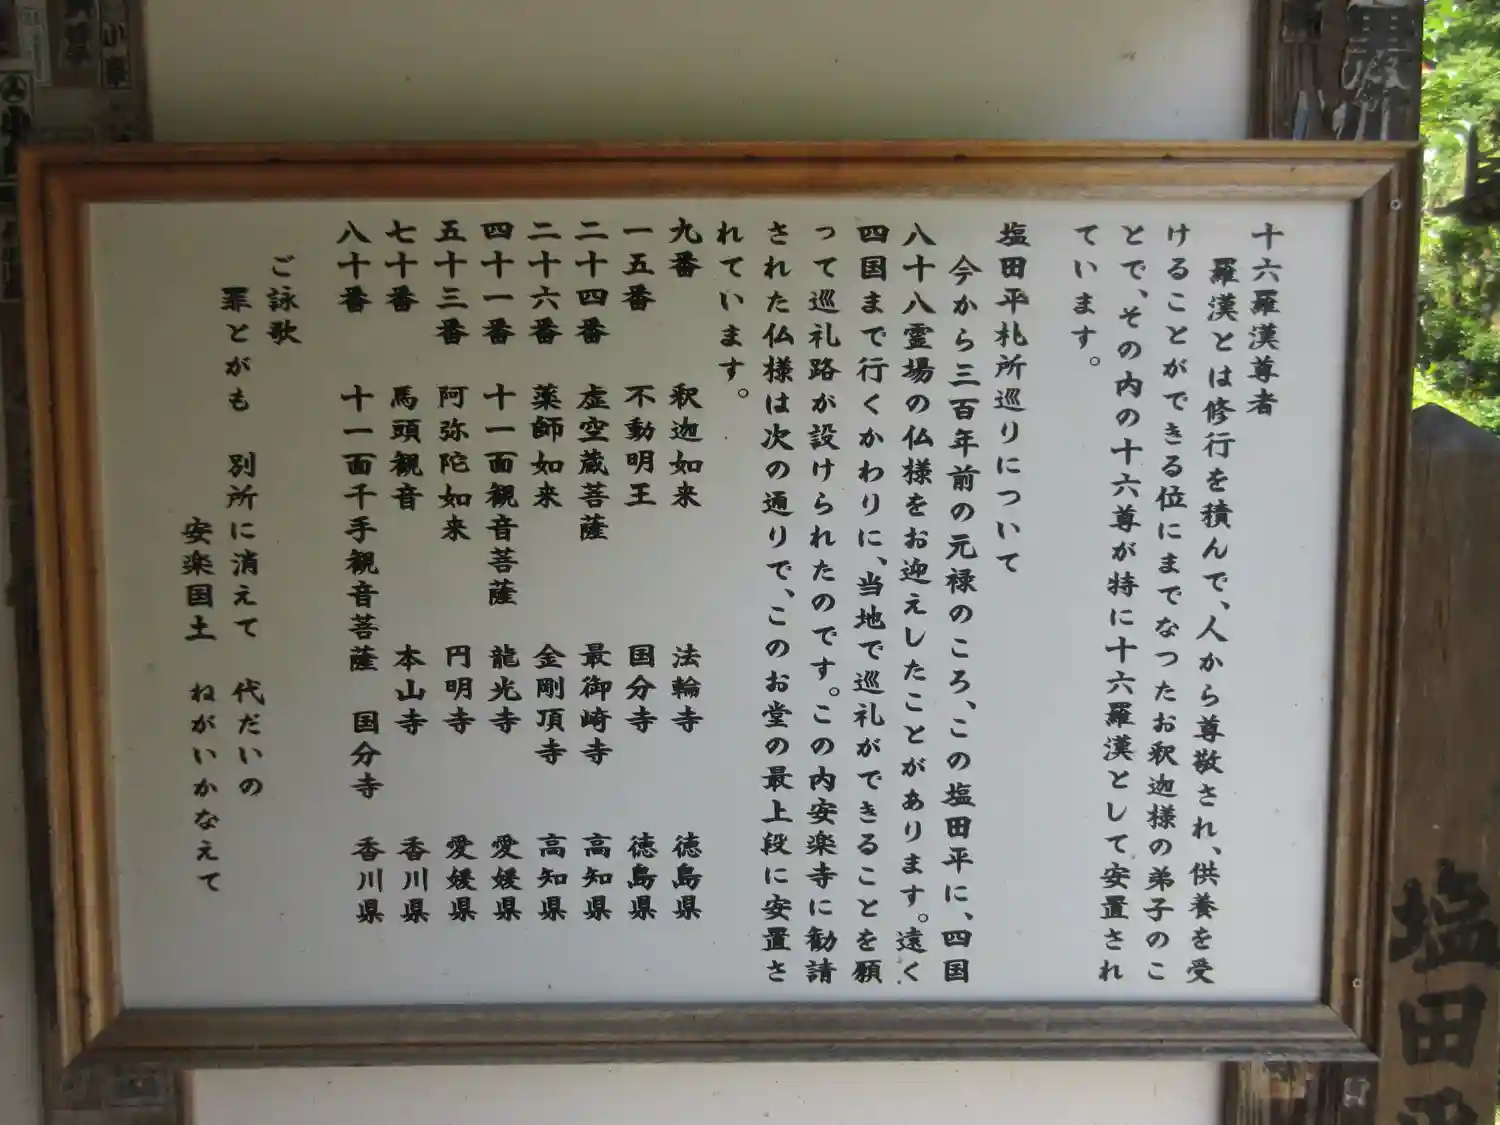 十六羅漢尊者
羅漢とは修行を積んで、人から尊敬され、供養を受
けることができる位にまでなったお釈迦様の弟子のこ
とで、その内の十六尊が特に十六羅漢として安置され
ています。
塩田平札所巡りについて
今から三百年前の元禄のころ、この塩田平に、四国
八十八霊場の仏様をお迎えしたことがあります。遠く
四国まで行くかわりに、当地で巡礼ができることを願
って巡礼路が設けられたのです。この内安楽寺に勧請
された仏様は次の通りで、このお堂の最上段に安置さ
れています。
九番 釈迦如来 法輪寺 徳島県
一五番 不動明王 国分寺 徳島県
二十四番 虚空蔵菩薩 最御崎寺 高知県
二十六番 薬師如来 金剛頂寺 高知県
四十一番 十一面観音菩薩 龍光寺 愛媛県
五十三番 阿弥陀如来 円明寺 愛媛県
七十番 馬頭観音 本山寺 香川県
八十番 十一面千手観音菩薩 国分寺 香川県
ご詠歌
罪とがも 別所に消えて 代だいの
安楽国土 ねがいかなえて
塩田